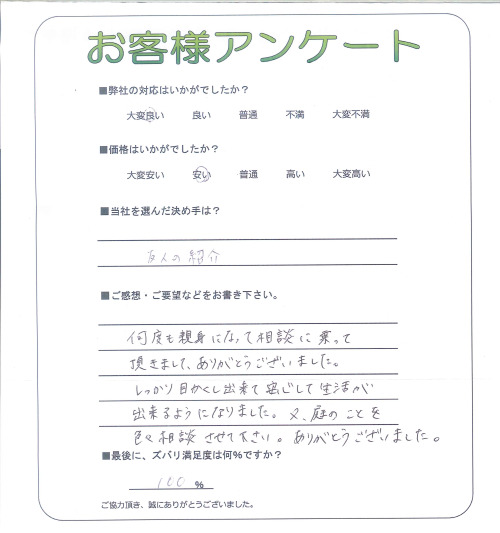 お客様アンケート
■弊社の対応はいかがでしたか？
大変良い 良い 普通 不満 大変不満
■価格はいかがでしたか？
大変安い 安い 普通 高い 大変高い
■当社を選んだ決め手は？
友人の紹介
■ご感想・ご要望などをお書き下さい。
何度も親身になって相談に乗って
頂きまして、ありがとうございました。
しっかり目かくし出来て安心して生活が
出来るようになりました。又、庭のことを
色々相談させて下さい。ありがとうございました。
■最後に、ズバリ満足度は何%ですか？
100 %
ご協力頂き、誠にありがとうございました。